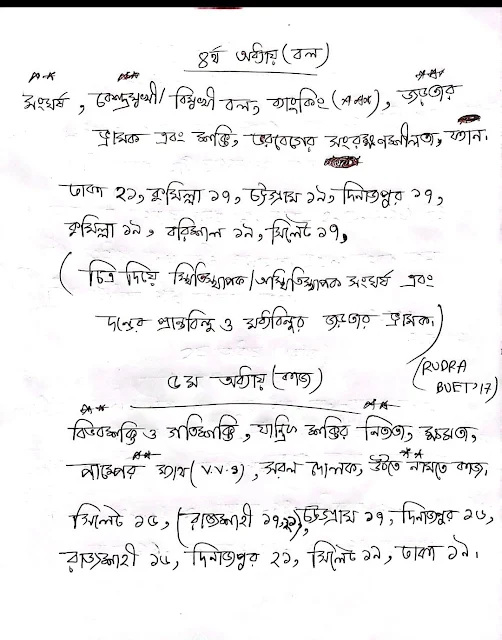 ৪র্থ অধ্যায় (বল)
সংঘর্ষ, কেন্দ্রমুখী/বিমুখী বল, ব্যাংকিং (AAA), জড়তার
ভ্রামক এবং শক্তি, ভরবেগের সংরক্ষণশীলতা,
ঢাকা ২১, কুমিল্লা ১৭, চট্টগ্রাম ১৯, দিনাজপুর ১৭,
কুমিল্লা ১৯, বরিশাল ১৯, সিলেট ১৭,
(চিত্র দিয়ে স্থিতিস্থাপক/অস্থিতিস্থাপক সংঘর্ষ এবং
দন্ডের প্রান্তবিন্দু ও মধ্যবিন্দুর জড়তার ভ্রামক)
(RUDRA
BUET'17)
৫ম অধ্যায় (কাজ)
বিভবশক্তি ও গতিশক্তি, যান্ত্রিক শক্তির নিত্যতা, ক্ষমতা,
পাম্পের ম্যাথ (V.V.I), সরল দোলক, উঠতে নামতে কাজ,
সিলেট ১৫, (রাজশাহী ১৭, ২১), চট্টগ্রাম ১৭, দিনাজপুর ১৫,
রাজশাহী ১৫, দিনাজপুর ২১, সিলেট ১৯, ঢাকা ১৯।